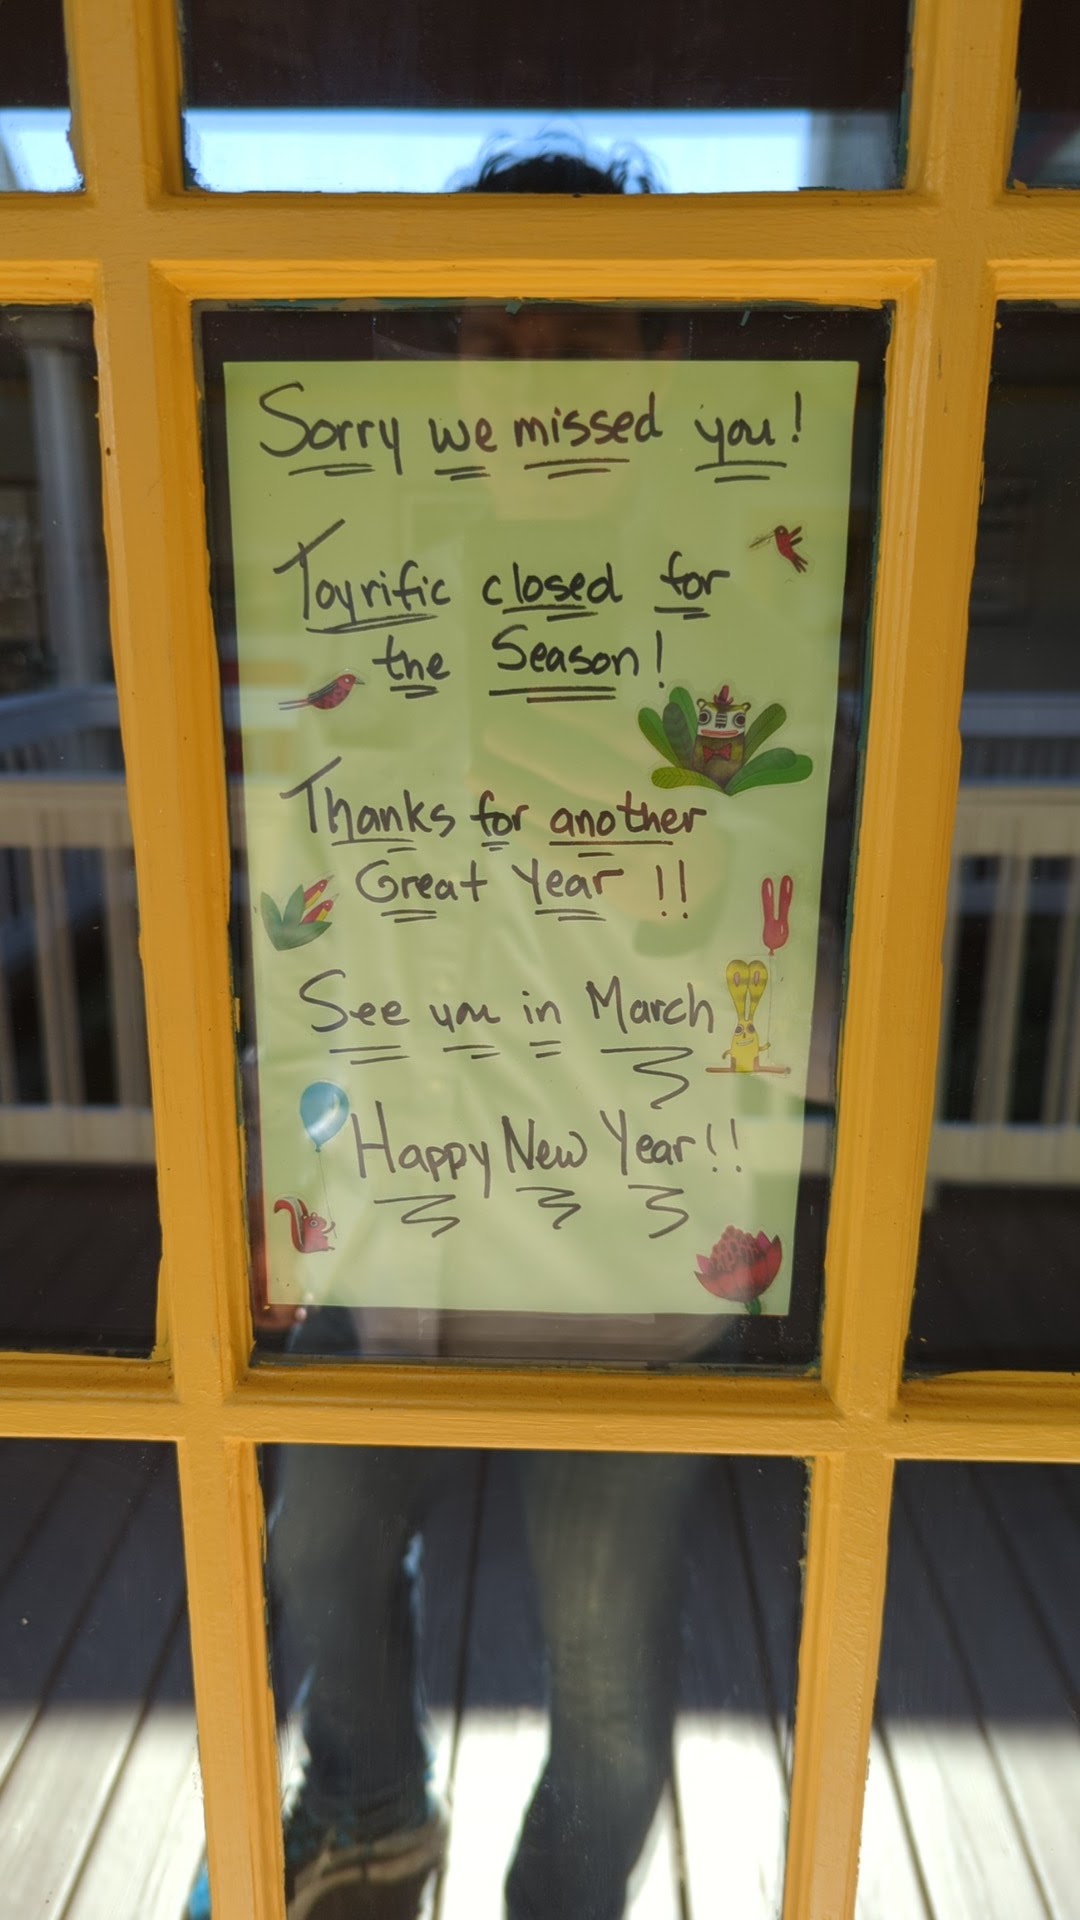 Sorry we missed you!
Toyrific closed for
the Season!
Thanks for another
Great Year !!
See you in March
Happy New Year!!